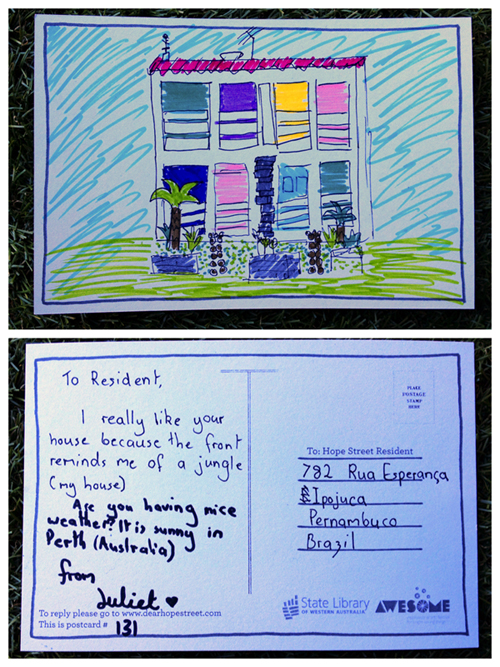 To Resident,
I really like your
house because the front
reminds me of a jungle
(my house)
Are you having nice
weather? It is sunny in
Perth (Australia)
from
Juliet ♥
To reply please go to www.dearhopestreet.com
This is postcard # 131
PLACE
POSTAGE
STAMP
HERE
To: Hope Street Resident
782 Rua Esperança
Ipojuca
Pernambuco
Brazil
State Library
OF WESTERN AUSTRALIA
AWESOME